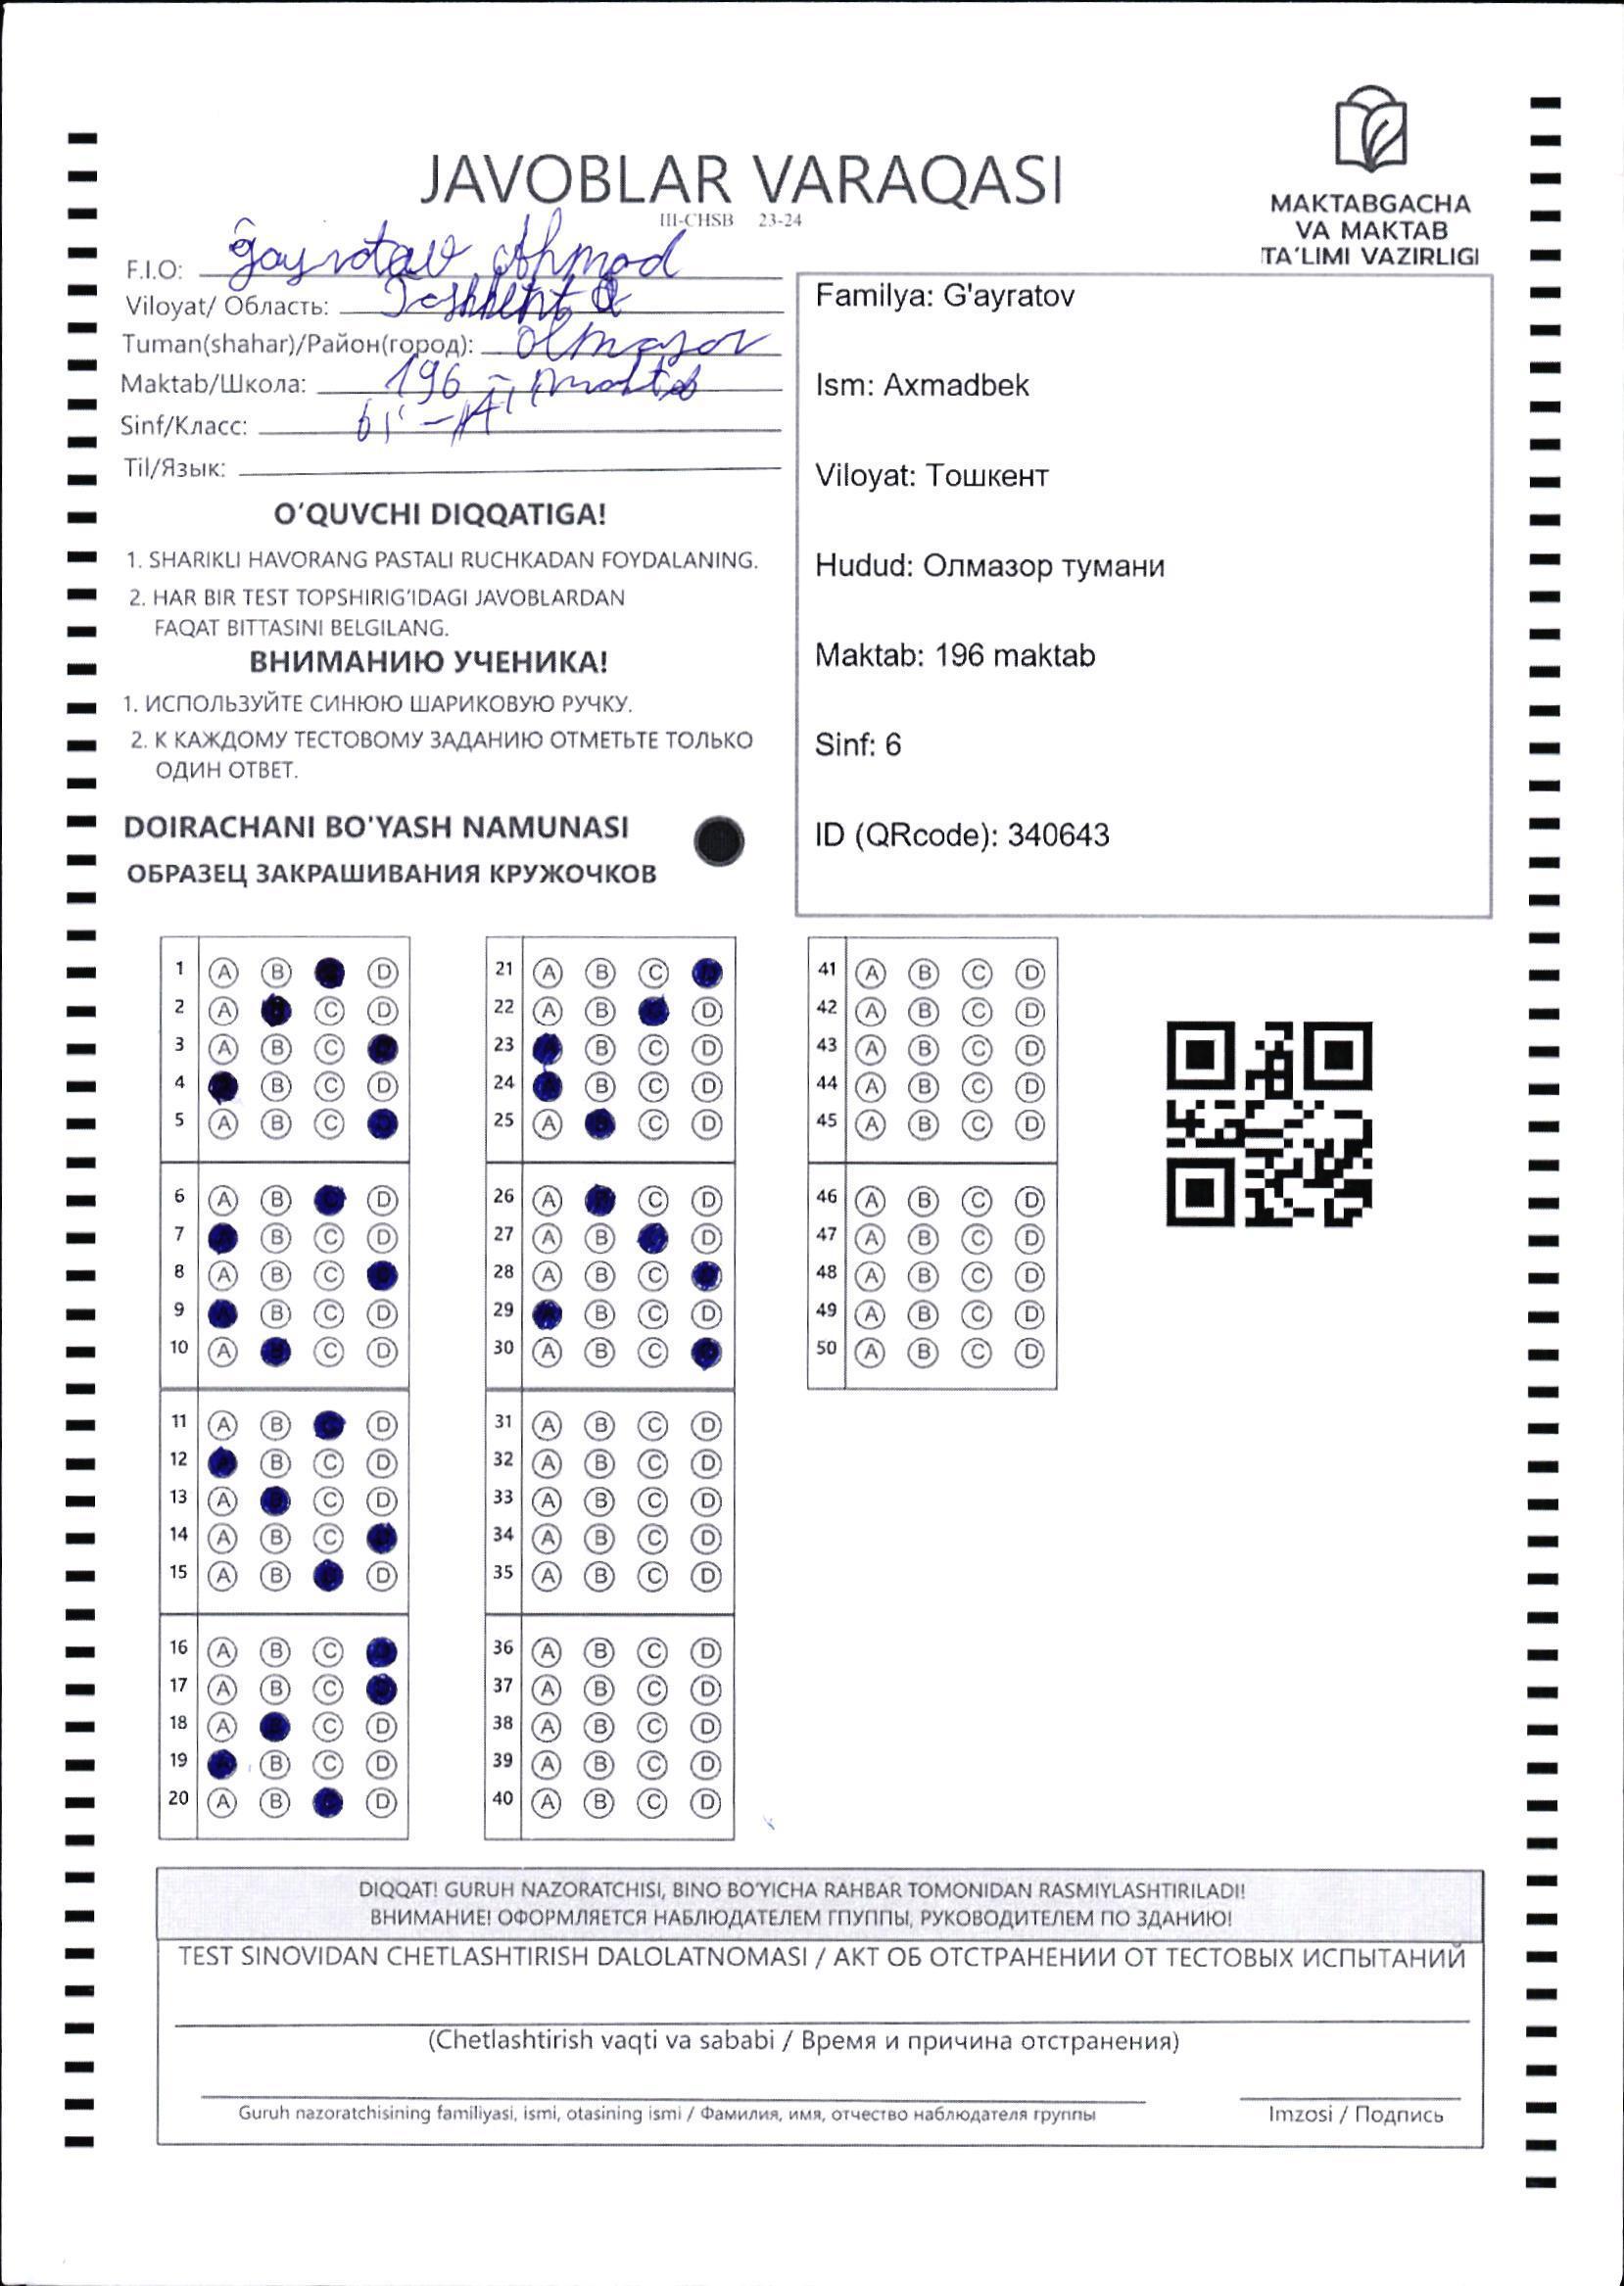 JAVOBLAR VARAQASI
III-CHSB 23-24
MAKTABGACHA
VA MAKTAB
TA'LIMI VAZIRLIGI
F.I.O: Ahmad
Viloyat/ Область: Toshkent
Tuman(shahar)/Район(город): Olmazor
Maktab/Школа: 196 - maktab
Sinf/Класс: 6 "A"
Til/Язык:
O'QUVCHI DIQQATIGA!
1. SHARIKLI HAVORANG PASTALI RUCHKADAN FOYDALANING.
2. HAR BIR TEST TOPSHIRIG'IDAGI JAVOBLARDAN
FAQAT BITTASINI BELGILANG.
ВНИМАНИЮ УЧЕНИКА!
1. ИСПОЛЬЗУЙТЕ СИНЮЮ ШАРИКОВУЮ РУЧКУ.
2. К КАЖДОМУ ТЕСТОВОМУ ЗАДАНИЮ ОТМЕТЬТЕ ТОЛЬКО
ОДИН ОТВЕТ.
DOIRACHANI BO'YASH NAMUNASI
ОБРАЗЕЦ ЗАКРАШИВАНИЯ КРУЖОЧКОВ
Familya: G'ayratov
Ism: Axmadbek
Viloyat: Тошкент
Hudud: Олмазор тумани
Maktab: 196 maktab
Sinf: 6
ID (QRcode): 340643
1 A B D
2 A C D
3 A B C
4 B C D
5 A B C
6 A B D
7 B C D
8 A B C
9 B C D
10 A C D
11 A B D
12 B C D
13 A C D
14 A B C
15 A B D
16 A B C
17 A B C
18 A C D
19 B C D
20 A B D
21 A B C
22 A B D
23 B C D
24 B C D
25 A C D
26 A C D
27 A B D
28 A B C
29 B C D
30 A B C
31 A B C D
32 A B C D
33 A B C D
34 A B C D
35 A B C D
36 A B C D
37 A B C D
38 A B C D
39 A B C D
40 A B C D
41 A B C D
42 A B C D
43 A B C D
44 A B C D
45 A B C D
46 A B C D
47 A B C D
48 A B C D
49 A B C D
50 A B C D
DIQQAT! GURUH NAZORATCHISI, BINO BO'YICHA RAHBAR TOMONIDAN RASMIYLASHTIRILADI!
ВНИМАНИЕ! ОФОРМЛЯЕТСЯ НАБЛЮДАТЕЛЕМ ГПУППЫ, РУКОВОДИТЕЛЕМ ПО ЗДАНИЮ!
TEST SINOVIDAN CHETLASHTIRISH DALOLATNOMASI / АКТ ОБ ОТСТРАНЕНИИ ОТ ТЕСТОВЫХ ИСПЫТАНИЙ
(Chetlashtirish vaqti va sababi / Время и причина отстранения)
Guruh nazoratchisining familiyasi, ismi, otasining ismi / Фамилия, имя, отчество наблюдателя группы
Imzosi / Подпись